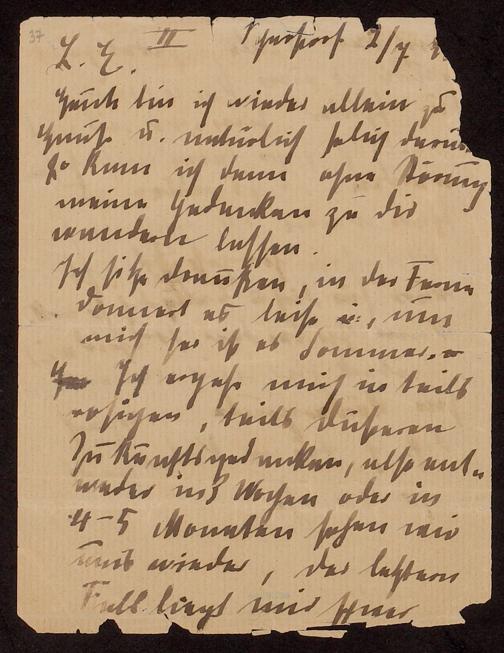 37
L. E. III 2/7
Heute bin ich wieder allein zu
Hause u. natürlich selig darü
So kann ich dann ohne Störung
meine Gedanken zu dir
wandern lassen.
Ich sitze draußen, in der Ferne
donnert es leise u., um
mich her ist es Sommer.
Ich ergehe mich in teils
rosigen, teils düsteren
Zukunftsgedanken, also ent-
weder in 3 Wochen oder in
4-5 Monaten sehen wir
uns wieder, der letztere
Fall liegt mir schwer